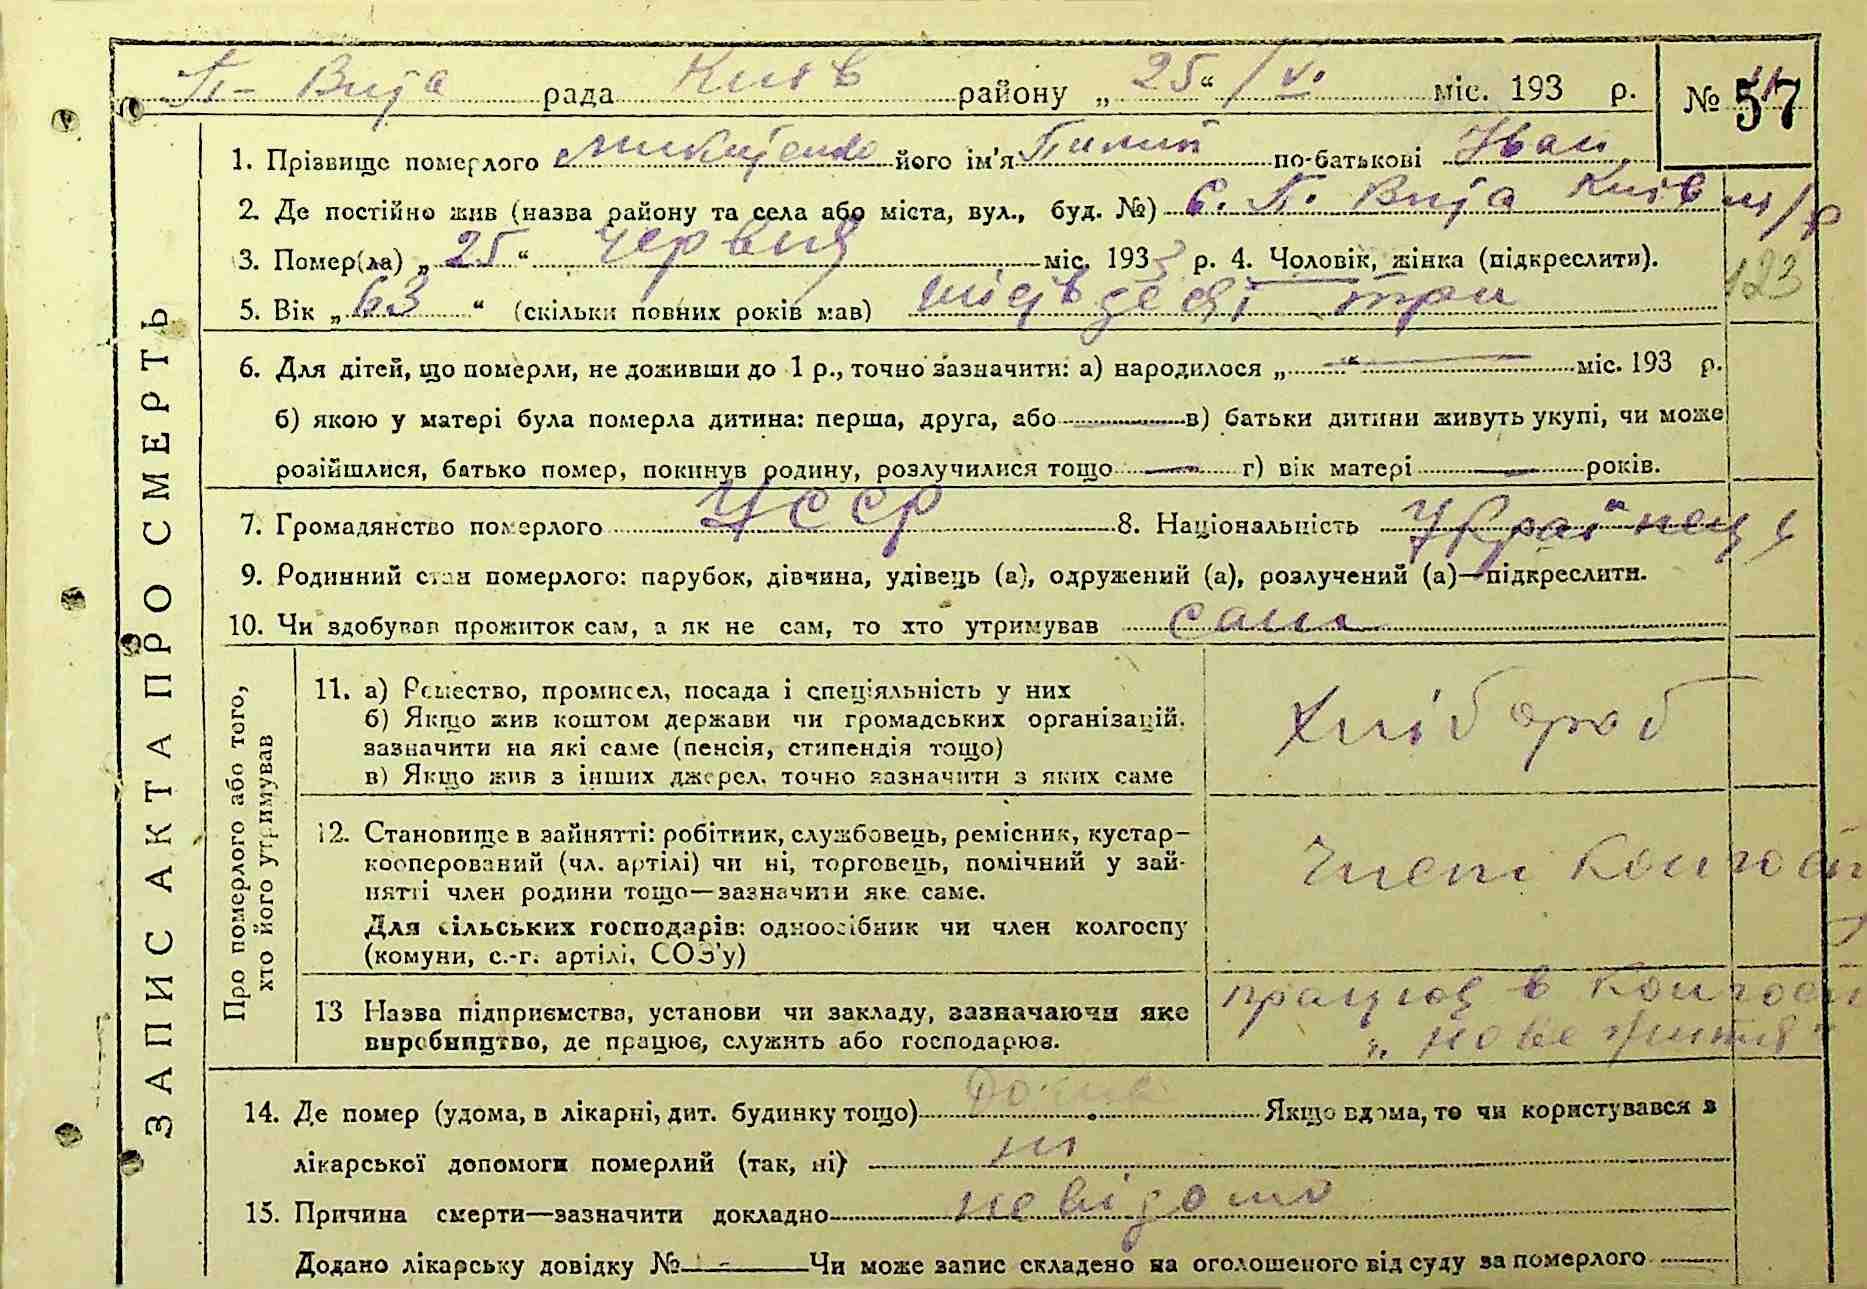 П- Вита рада Київ району „ 25 “ / VI. міс. 193 р. № 57
1. Прізвище померлого Микитенко його ім'я Пилип по-батькові Іван
2. Де постійно жив (назва району та села або міста, вул., буд. №) с. П. Вита Київ м/р
3. Помер(ла) „ 25 “ червня міс. 1933 р. 4. Чоловік, жінка (підкреслити).
123
5. Вік „ 63 “ (скільки повних років мав) шісьдесят три
6. Для дітей, що померли, не доживши до 1 р., точно зазначити: а) народилося „ — “ — міс. 193 р.
б) якою у матері була померла дитина: перша, друга, або — в) батьки дитини живуть укупі, чи може
розійшлися, батько помер, покинув родину, розлучилися тощо — г) вік матері — років.
7. Громадянство померлого УССР 8. Національність Українець
9. Родинний стан померлого: парубок, дівчина, удівець (а), одружений (а), розлучений (а)—підкреслити.
10. Чи здобував прожиток сам, а як не сам, то хто утримував сам
ЗАПИС АКТА ПРО СМЕРТЬ
Про померлого або того,
хто його утримував
11. а) Ремество, промисел, посада і спеціяльність у них
б) Якщо жив коштом держави чи громадських організацій,
зазначити на які саме (пенсія, стипендія тощо)
в) Якщо жив з інших джерел, точно зазначити з яких саме
Хлібороб
12. Становище в зайнятті: робітник, службовець, ремісник, кустар-
кооперований (чл. артілі) чи ні, торговець, помічний у зай-
нятті член родини тощо—зазначити яке саме.
Для сільських господарів: одноосібник чи член колгоспу
(комуни, с.-г. артілі, СОЗ'у)
Член колгосп
13 Назва підприємства, установи чи закладу, зазначаючи яке
виробництво, де працює, служить або господарює.
працював в колгосп
„нове життя“
14. Де помер (удома, в лікарні, дит. будинку тощо) дома Якщо вдома, то чи користувався з
лікарської допомоги померлий (так, ні) ні
15. Причина смерти—зазначити докладно невідомо
Додано лікарську довідку № — Чи може запис складено на оголошеного від суду за померлого